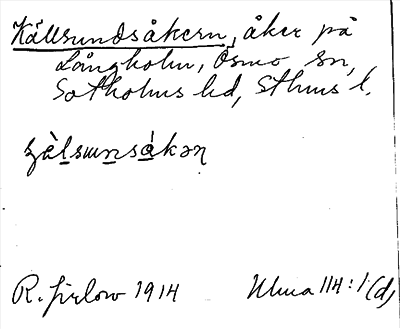 Källsundsåkern, åker på
Långholm, Ösmo sn,
Sotholms hd, Sthms l.
R. Jirlow 1914 Ulma 114:1(d)